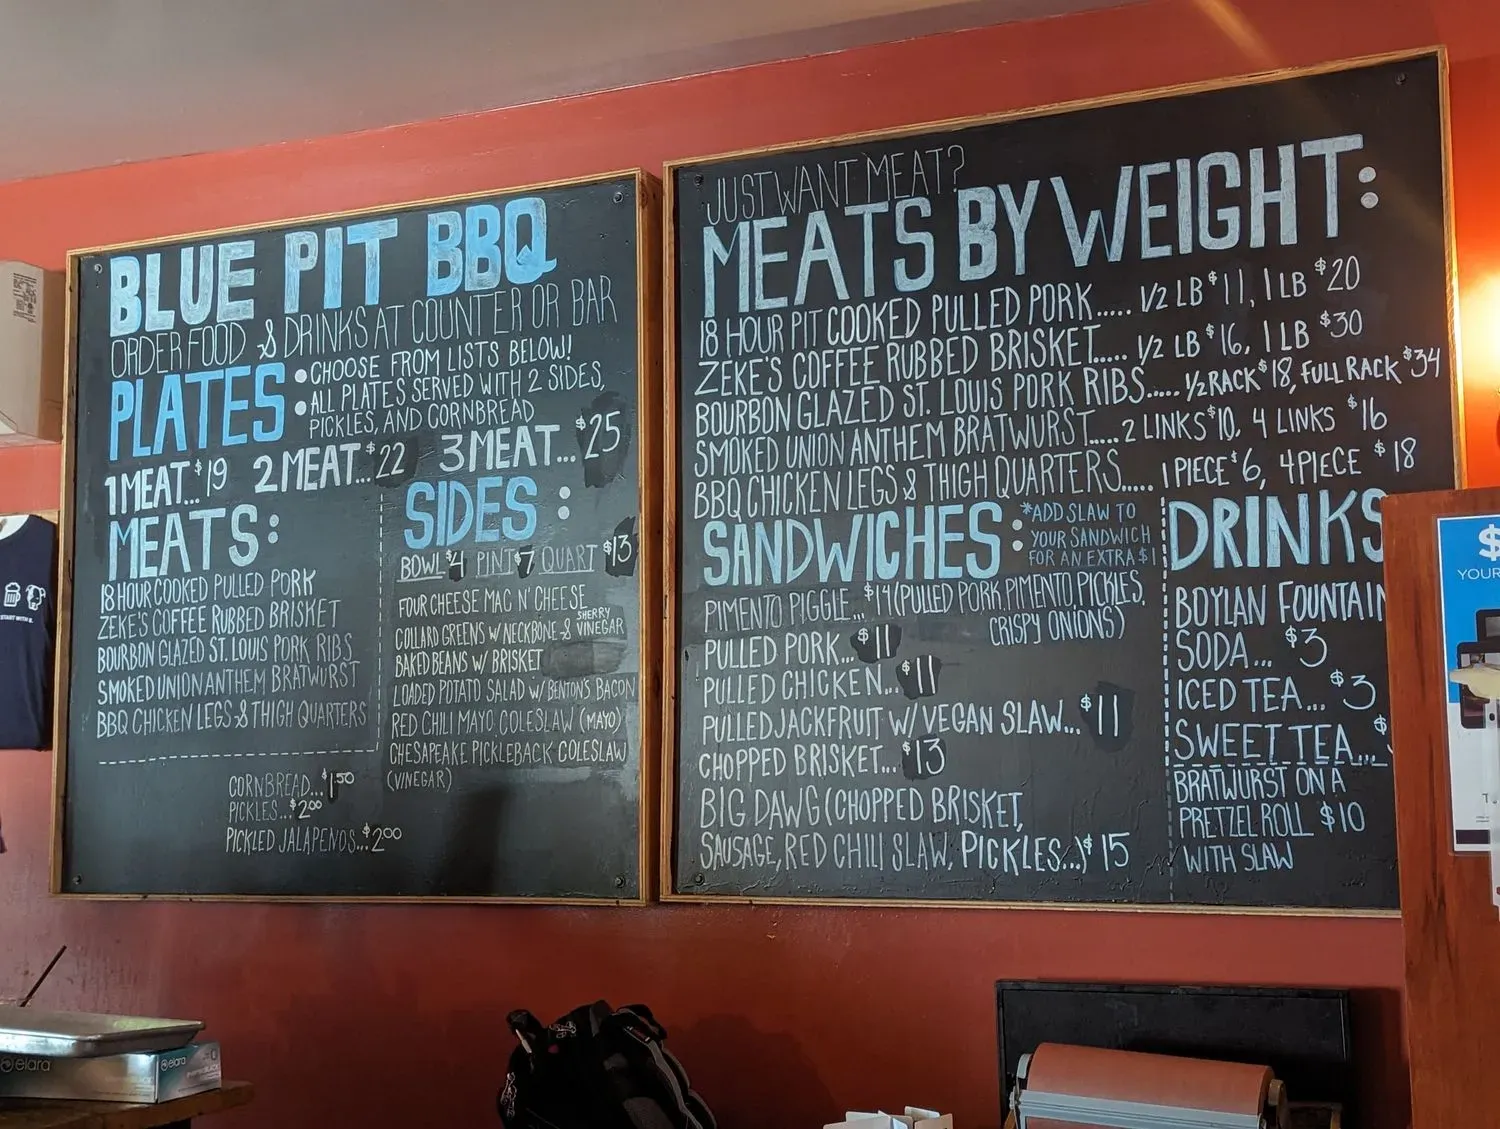 BLUE PIT BBQ
ORDER FOOD & DRINKS AT COUNTER OR BAR
PLATES:
CHOOSE FROM LISTS BELOW!
ALL PLATES SERVED WITH 2 SIDES,
PICKLES, AND CORNBREAD
1 MEAT...$19 2 MEAT...$22 3 MEAT...$25
MEATS:
18 HOUR COOKED PULLED PORK
ZEKE'S COFFEE RUBBED BRISKET
BOURBON GLAZED ST. LOUIS PORK RIBS
SMOKED UNION ANTHEM BRATWURST
BBQ CHICKEN LEGS & THIGH QUARTERS
SIDES:
BOWL $4 PINT $7 QUART $13
FOUR CHEESE MAC N' CHEESE
COLLARD GREENS W/ NECKBONE & SHERRY VINEGAR
BAKED BEANS W/ BRISKET
LOADED POTATO SALAD W/ BENTON'S BACON
RED CHILI MAYO COLESLAW (MAYO)
CHESAPEAKE PICKLEBACK COLESLAW
(VINEGAR)
CORNBREAD...$1.50
PICKLES...$2.00
PICKLED JALAPEÑOS...$2.00
JUST WANT MEAT?
MEATS BY WEIGHT:
18 HOUR PIT COOKED PULLED PORK..... 1/2 LB $11, 1 LB $20
ZEKE'S COFFEE RUBBED BRISKET..... 1/2 LB $16, 1 LB $30
BOURBON GLAZED ST. LOUIS PORK RIBS..... 1/2 RACK $18, FULL RACK $34
SMOKED UNION ANTHEM BRATWURST..... 2 LINKS $10, 4 LINKS $16
BBQ CHICKEN LEGS & THIGH QUARTERS..... 1 PIECE $6, 4 PIECE $18
SANDWICHES:
*ADD SLAW TO
YOUR SANDWICH
FOR AN EXTRA $1
PIMENTO PIGGLE...$14 (PULLED PORK, PIMENTO, PICKLES,
CRISPY ONIONS)
PULLED PORK...$11
PULLED CHICKEN...$11
PULLED JACKFRUIT W/ VEGAN SLAW...$11
CHOPPED BRISKET...$13
BIG DAWG (CHOPPED BRISKET,
SAUSAGE, RED CHILI SLAW, PICKLES...) $15
DRINKS
BOYLAN FOUNTAIN
SODA... $3
ICED TEA... $3
SWEET TEA... $
BRATWURST ON A
PRETZEL ROLL $10
WITH SLAW
elara
elara
$
YOUR